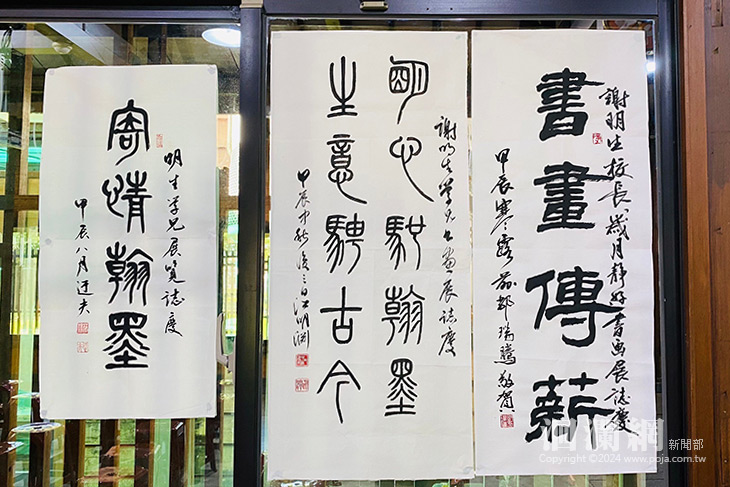 謝明生校長歲月靜好書画展誌慶
書畫傳薪
甲辰寒露前 瑞騰敬賀
謝明生學兄書画展誌慶
明心馭翰墨
生意騁古今
甲辰中秋後三日 明淵
明生学兄展覽誌慶
寄情翰墨
甲辰八月迂夫
洄瀾網 新聞部
Copyright ©2024 www.poja.com.tw